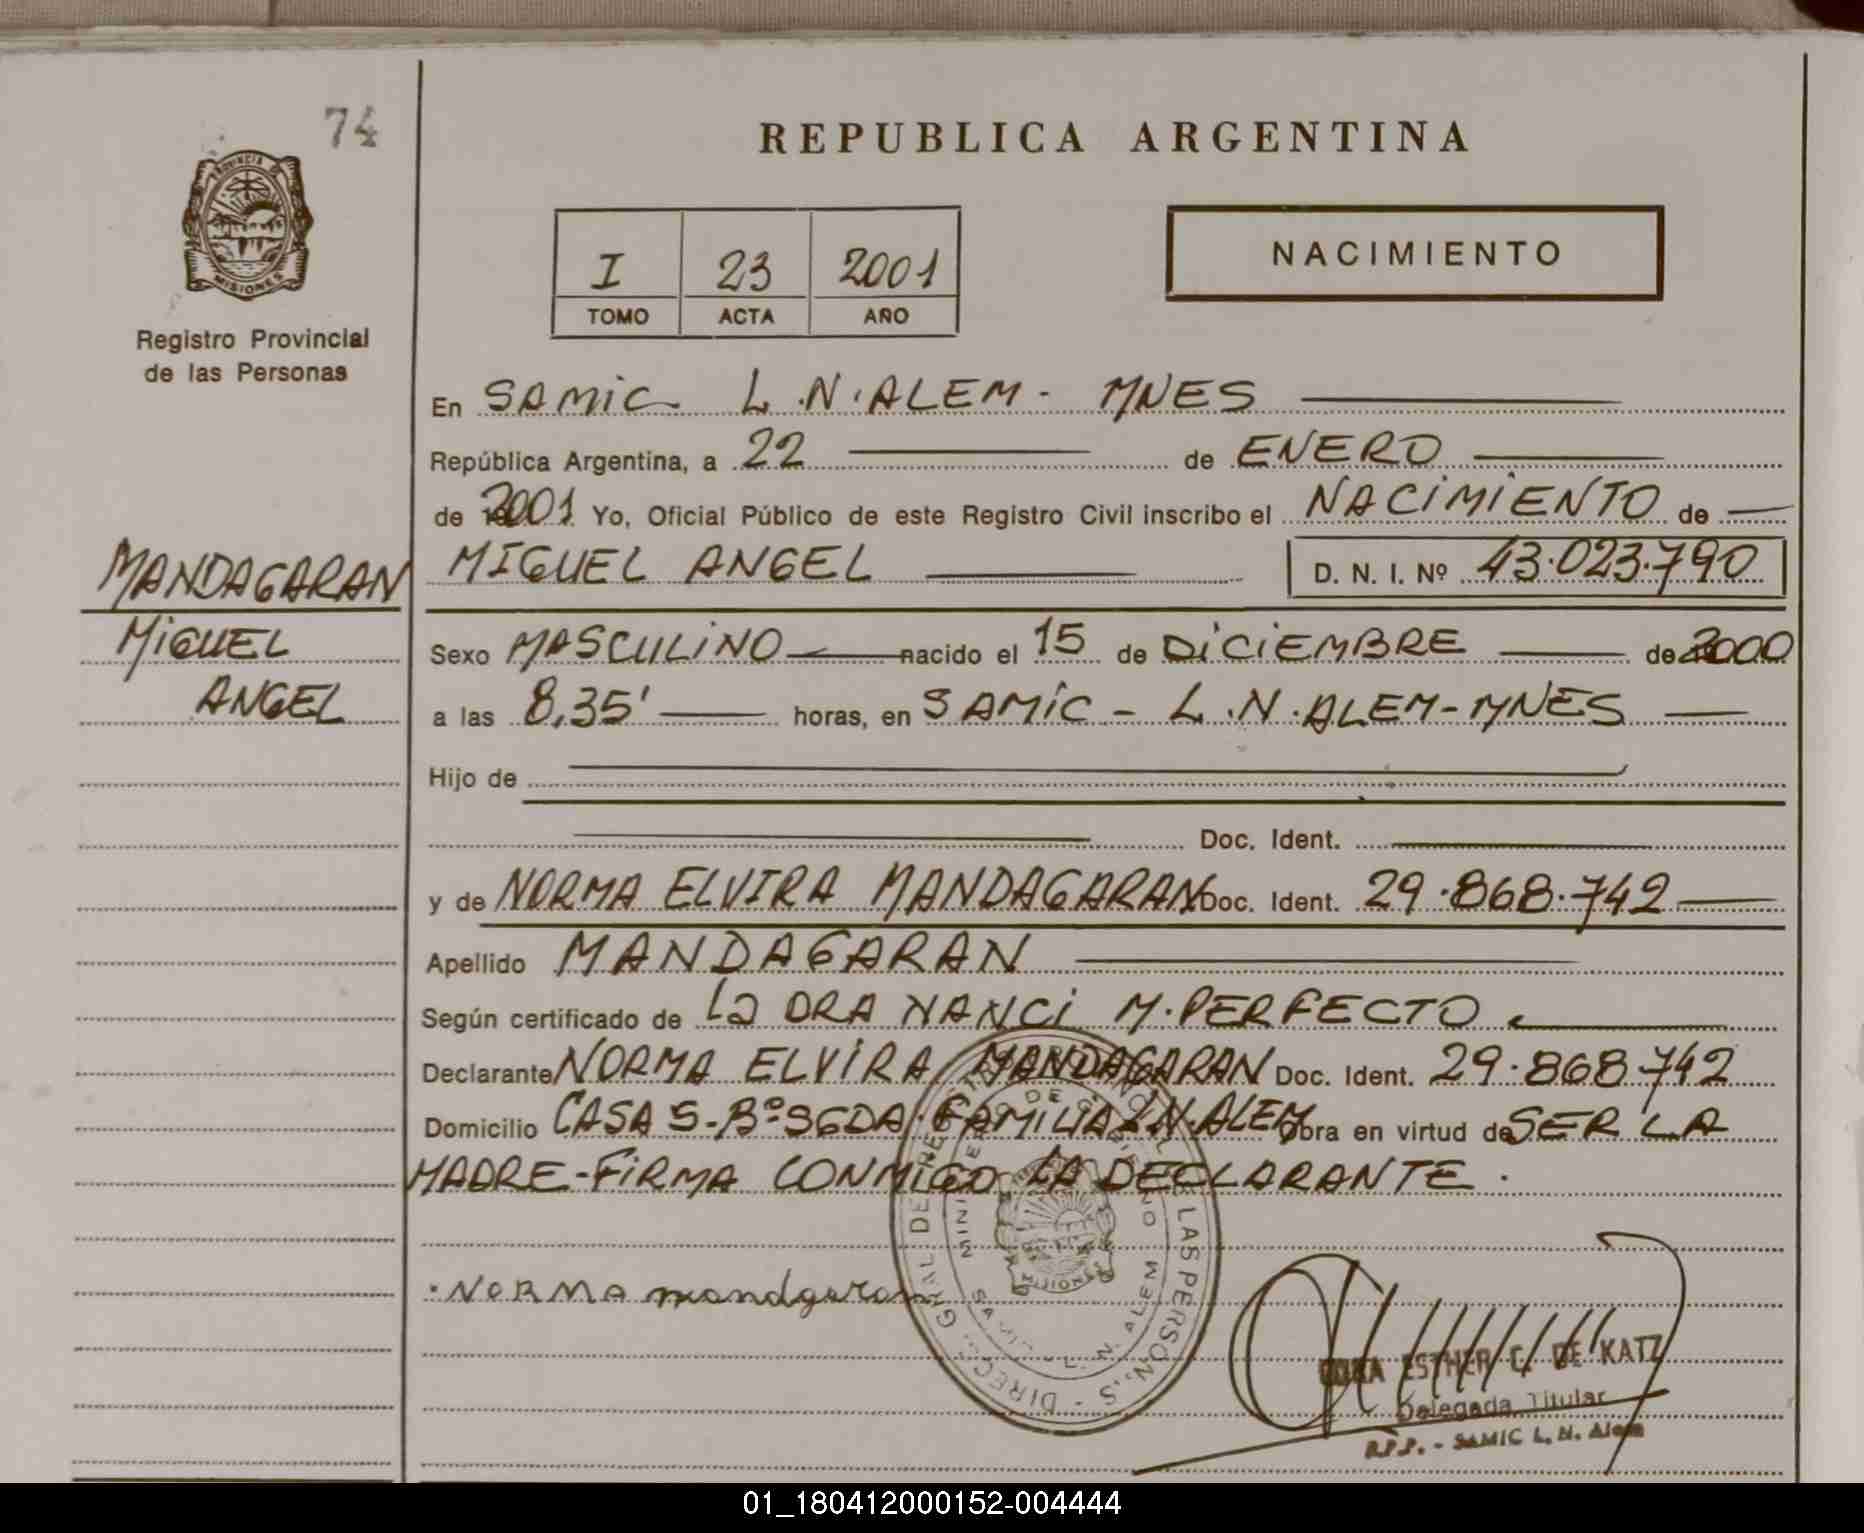 74
PROVINCIA DE
MISIONES
Registro Provincial
de las Personas
MANDAGARAN
MIGUEL
ANGEL
REPUBLICA ARGENTINA
I 23 2001
TOMO ACTA AÑO
NACIMIENTO
En SAMIC L.N.ALEM- MNES
República Argentina, a 22 de ENERO
de 2001 Yo, Oficial Público de este Registro Civil inscribo el NACIMIENTO de
MIGUEL ANGEL D. N. I. Nº 43.023.790
Sexo MASCULINO nacido el 15 de DICIEMBRE de 2000
a las 8,35' horas, en SAMIC - L.N.ALEM-MNES
Hijo de
Doc. Ident.
y de NORMA ELVIRA MANDAGARAN Doc. Ident. 29.868.742
Apellido MANDAGARAN
Según certificado de La DRA NANCI M.PERFECTO
Declarante NORMA ELVIRA MANDAGARAN Doc. Ident. 29.868.742
Domicilio CASA 5-Bº SGDA. FAMILIA L.N.ALEM obra en virtud de SER LA
MADRE-FIRMA CONMIGO LA DECLARANTE.
NORMA mandgaran
MISIONES
L. N. ALEM
ESTHER C. DE KATZ
Delegada Titular
R.P.P. - SAMIC L. N. Alem
01_180412000152-004444